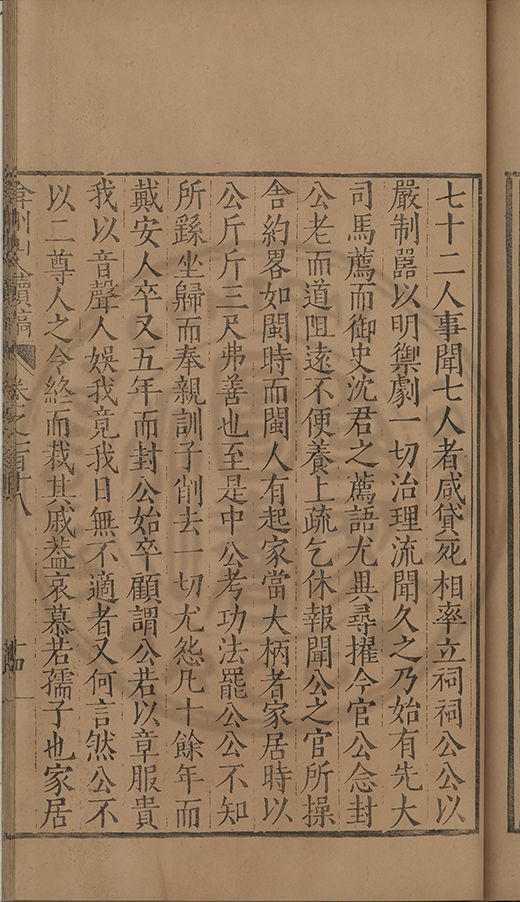 七十二人事聞七人者咸貸死相率立祠祠公公以
嚴制嚚以明禦劇一切治理流聞久之乃始有先大
司馬薦而御史沈君之薦語尤異尋擢今官公念封
公老而道阻遠不便養上疏乞休報聞公之官所操
舎約畧如閩時而閩人有起家當大柄者家居時以
公斤斤三尺弗善也至是中公考功法罷公公不知
所繇坐歸而奉親訓子削去一切尤怨凡十餘年而
戴安人卒又五年而封公始卒顧謂公若以章服貴
我以音聲人娛我竟我日無不適者又何言然公不
以二尊人之令終而裁其戚葢哀慕若孺子也家居
弇州山人續稿 卷之一百十八